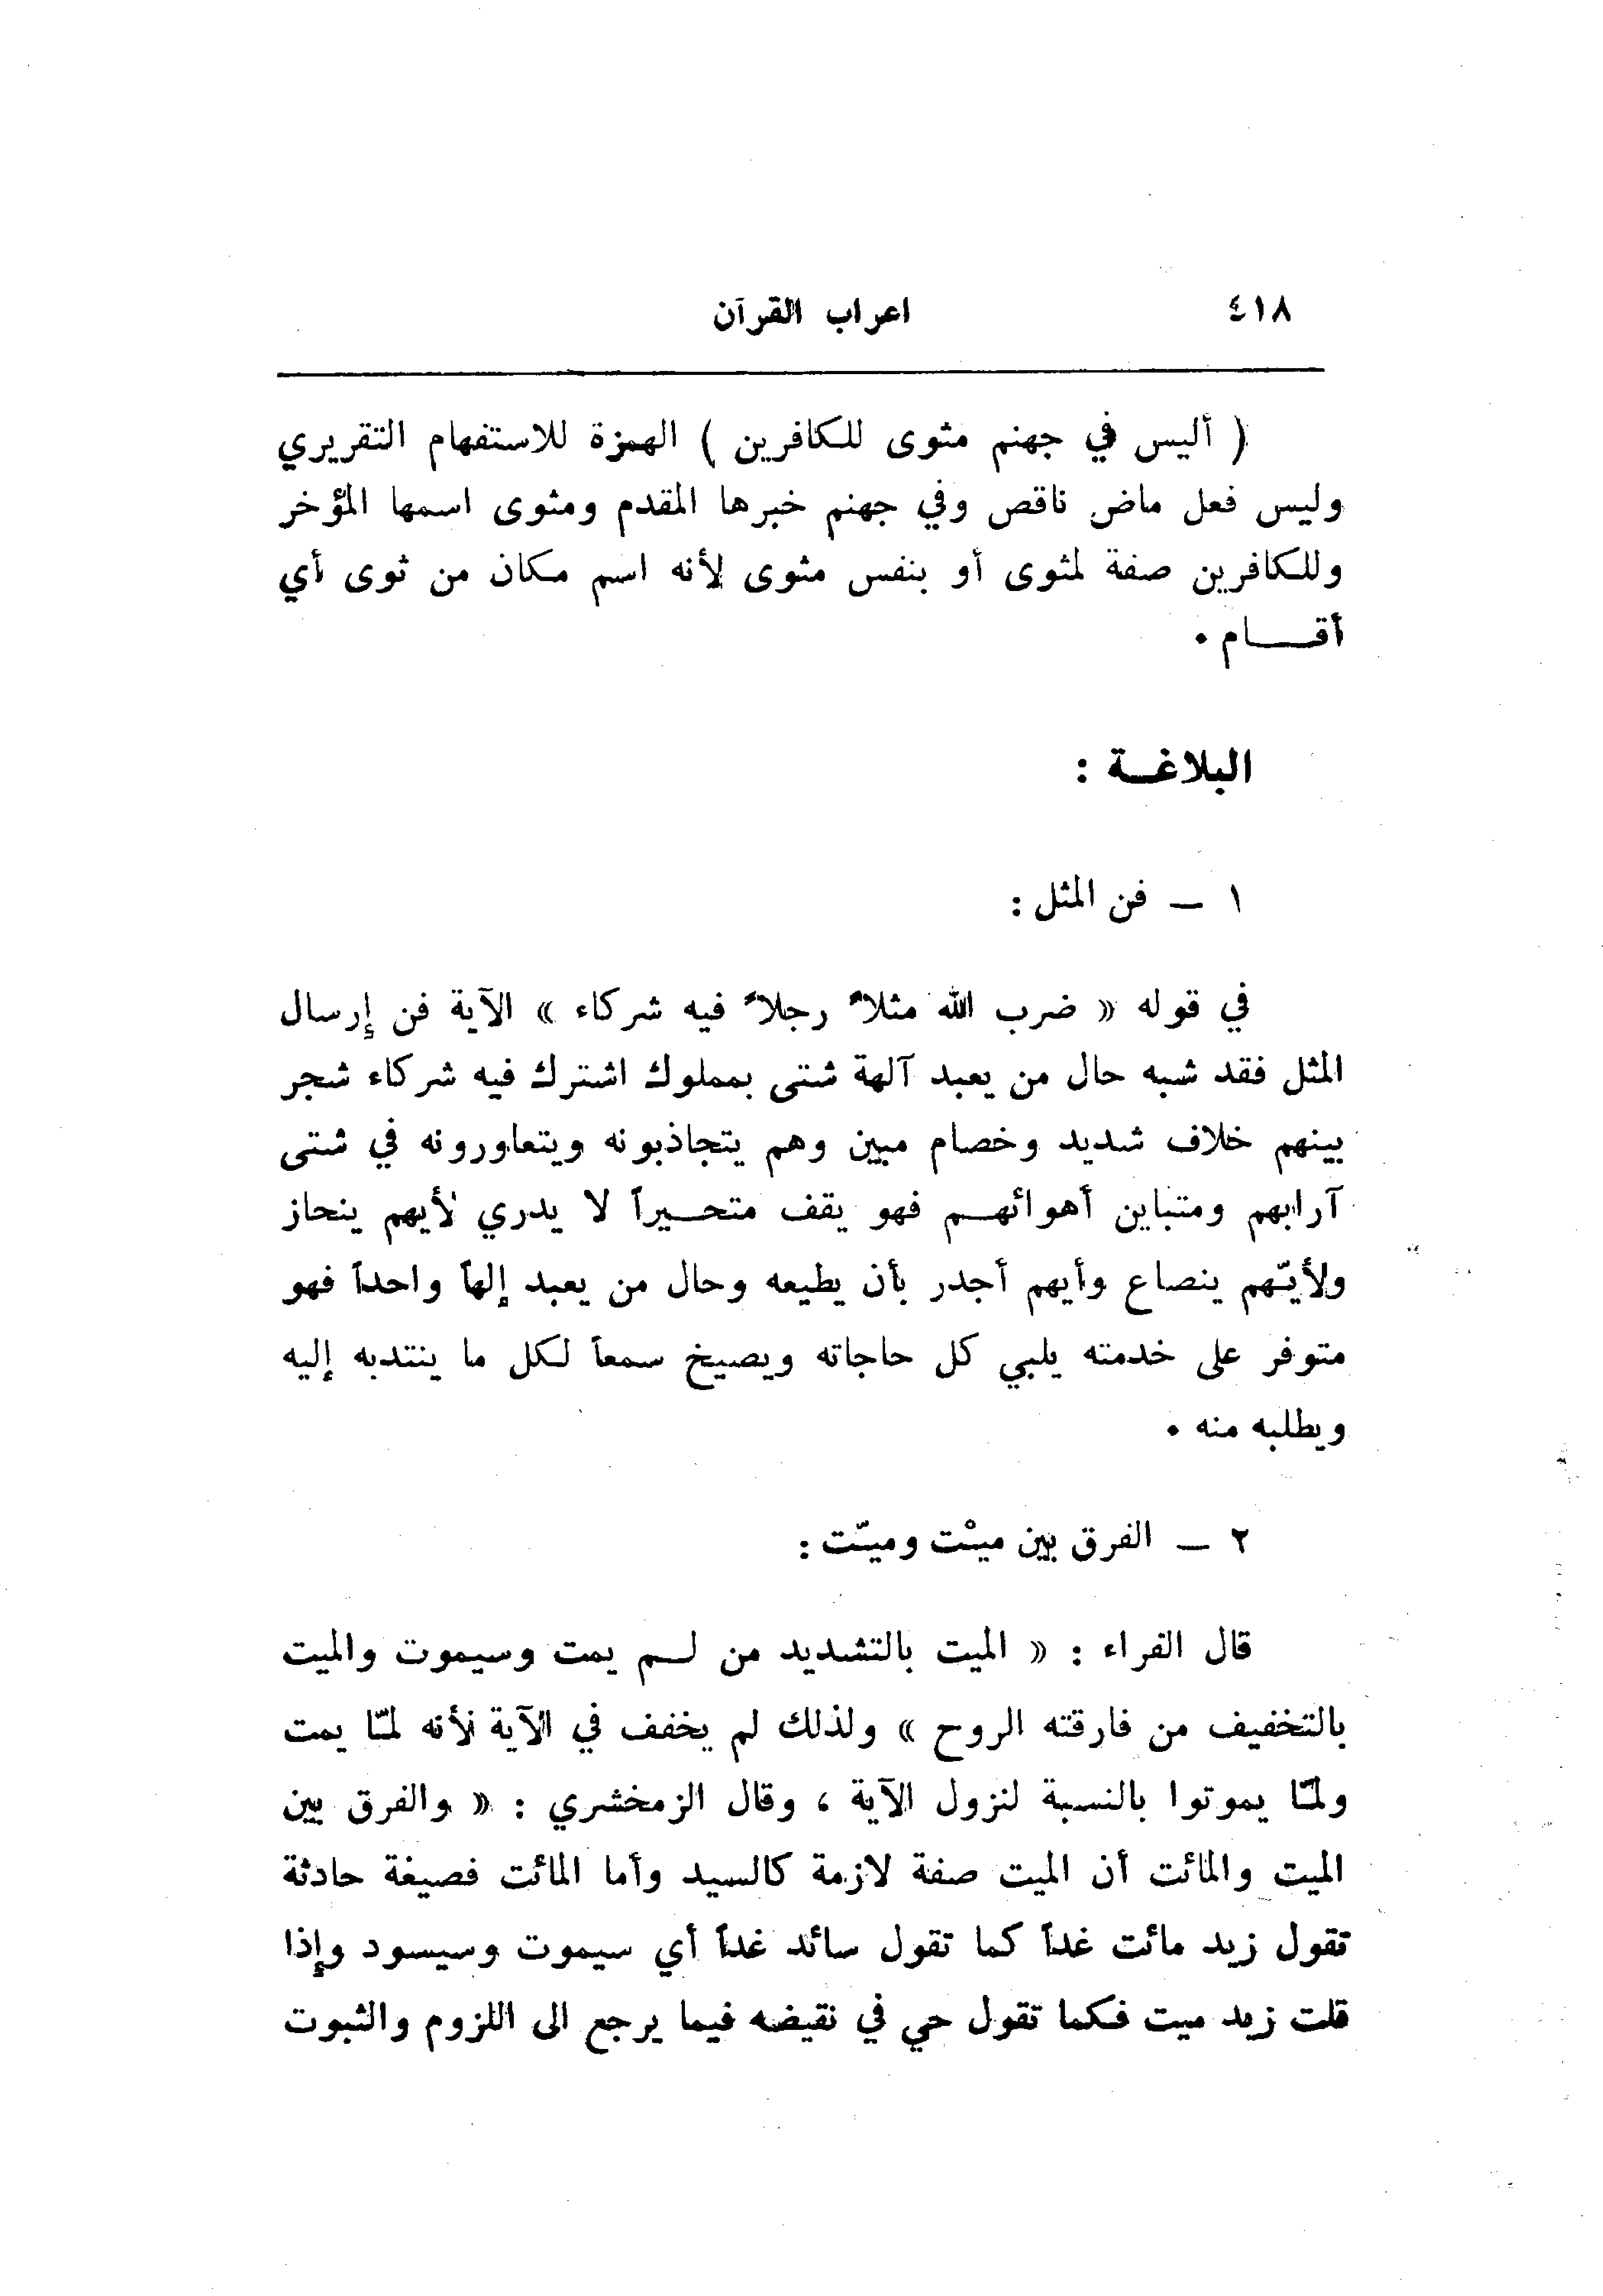 ٤١٨ اعراب القرآن
( أليس في جهنم مثوى للكافرين ) الهمزة للاستفهام التقريري
وليس فعل ماض ناقص وفي جهنم خبرها المقدم ومثوى اسمها المؤخر
وللكافرين صفة لمثوى أو بنفس مثوى لأنه اسم مكان من ثوى أي
أقـــام .
البلاغـة :
١ – فن المثل :
في قوله « ضرب الله مثلاً رجلاً فيه شركاء » الآية فن إرسال
المثل فقد شبه حال من يعبد آلهة شتى بمملوك اشترك فيه شركاء شجر
بينهم خلاف شديد وخصام مبين وهم يتجاذبونه ويتعاورونه في شتى
آرابهم ومتباين أهوائهـم فهو يقف متحـيراً لا يدري لأيهم ينحاز
ولأيّهم ينصاع وأيهم أجدر بأن يطيعه وحال من يعبد إلهاً واحداً فهو
متوفر على خدمته يلبي كل حاجاته ويصيخ سمعاً لكل ما ينتدبه إليه
ويطلبه منه .
٢ – الفرق بين ميْت وميّت :
قال الفراء : « الميت بالتشديد من لـم يمت وسيموت والميت
بالتخفيف من فارقته الروح » ولذلك لم يخفف في الآية لأنه لمّا يمت
ولمّا يموتوا بالنسبة لنزول الآية ، وقال الزمخشري : « والفرق بين
الميت والمائت أن الميت صفة لازمة كالسيد وأما المائت فصيغة حادثة
تقول زيد مائت غداً كما تقول سائد غداً أي سيموت وسيسود وإذا
قلت زيد ميت فكما تقول حي في نقيضه فيما يرجع الى اللزوم والثبوت